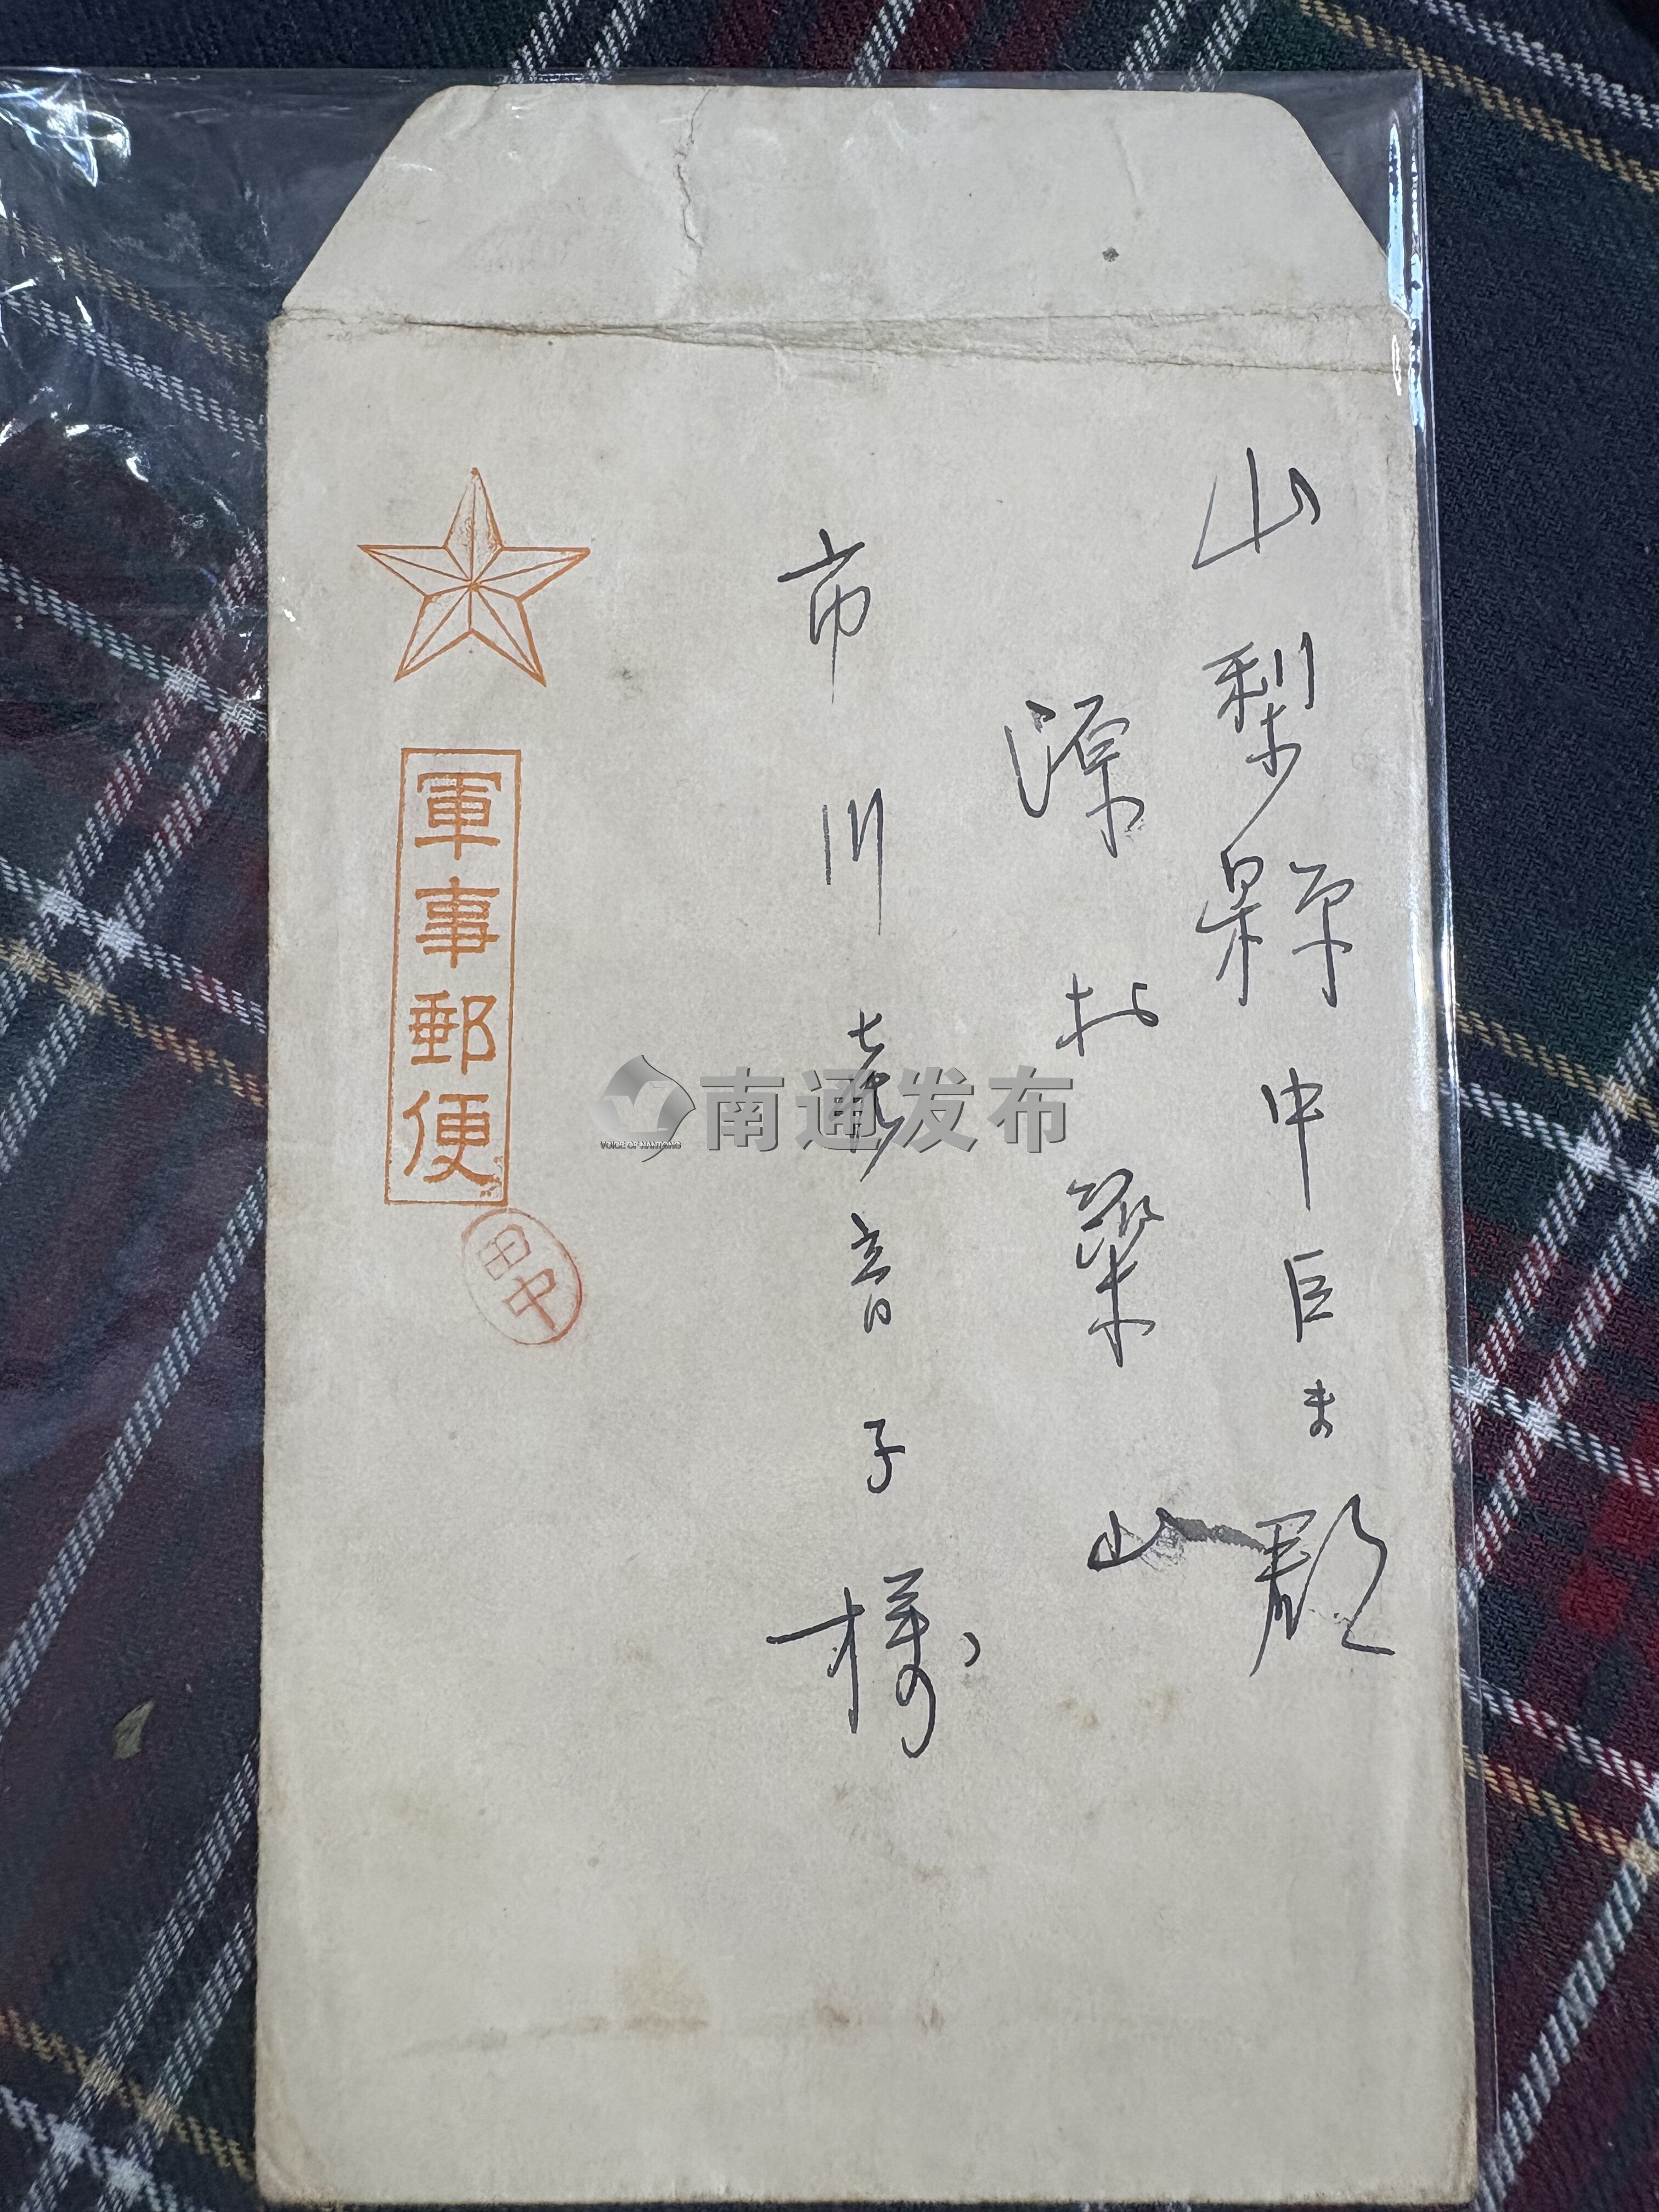 山梨縣中巨摩郡
源村築山
市川喜音子様
軍事郵便
田中
南通发布
VOICE OF NANTONG